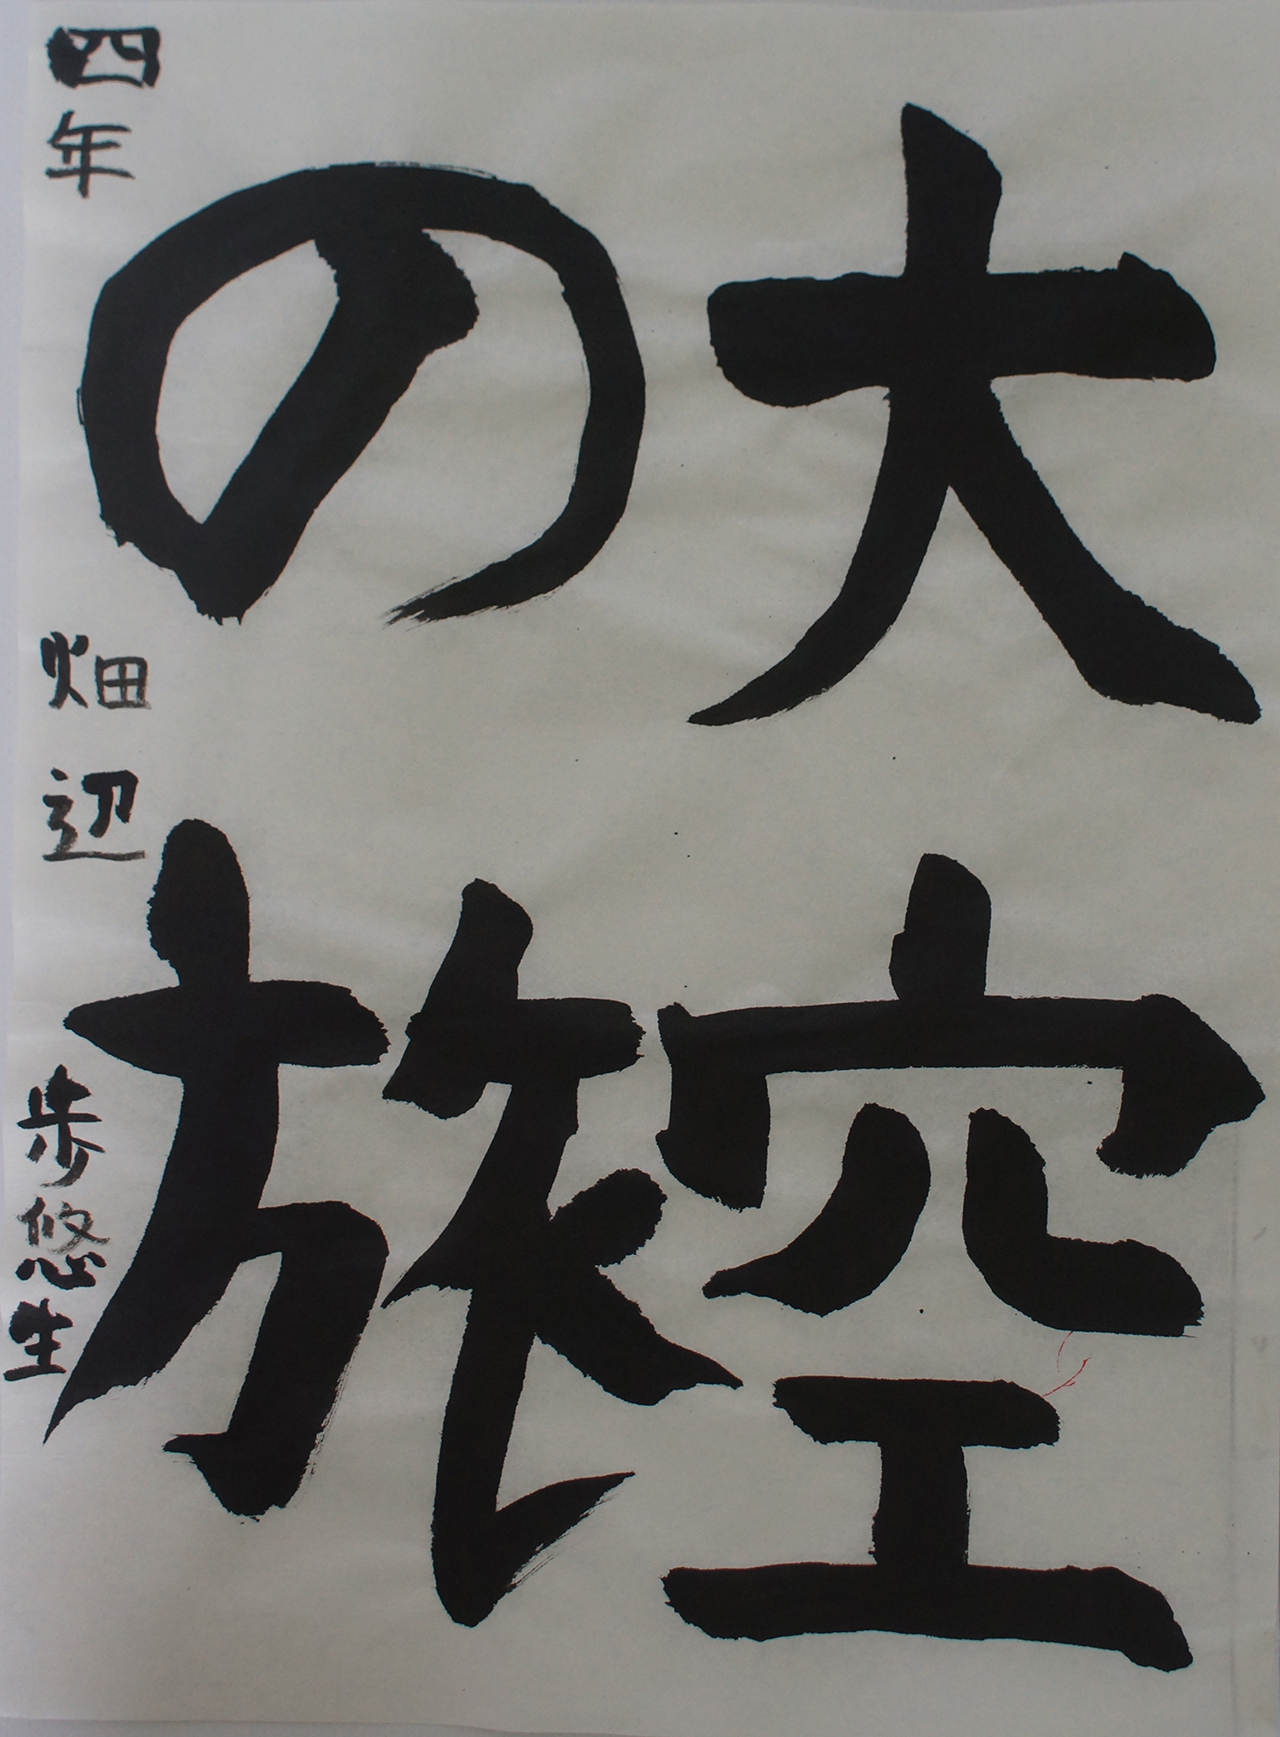 大空
の旅
四年 畑辺 歩悠生